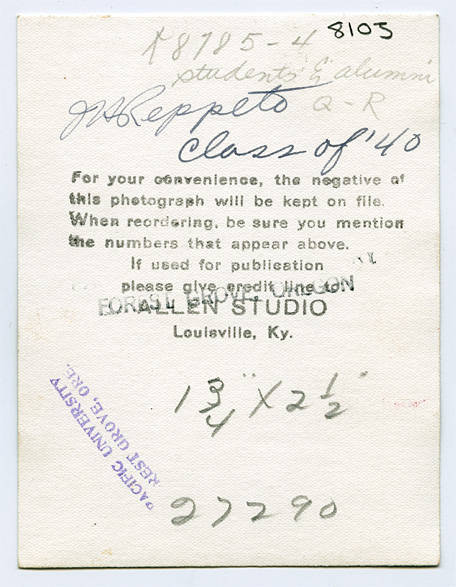 8105
8785-4
students & alumni
Q-R
JHReppeto
class of '40
For your convenience, the negative of
this photograph will be kept on file.
When reordering, be sure you mention
the numbers that appear above.
If used for publication
please give credit line to:
FOREST GROVE, OREGON
ALLEN STUDIO
Louisville, Ky.
PACIFIC UNIVERSITY
REST GROVE, ORE.
1 3/4" X 2 1/2"
27290